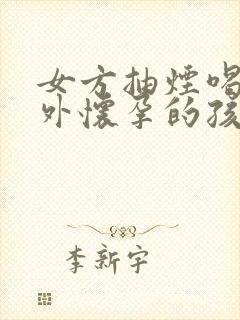 女方抽煙喝
外懷孕的孩
李新宇